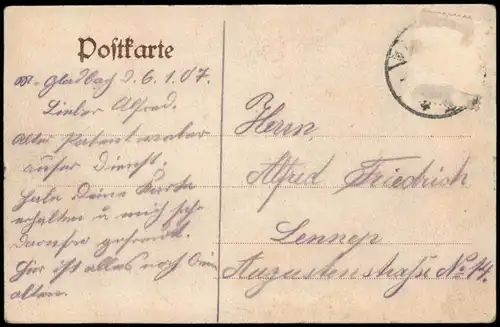 Postkarte
M-Gladbach d. 6.1.07.
Lieber Alfred.
Alter Patent
außer Dienst.
Habe Deine Karte
erhalten u. mich sehr
darüber gefreut.
Hier ist alles noch beim
alten.
Herrn
Alfred Friedrich
Lennep
Augustenstraße No 14.